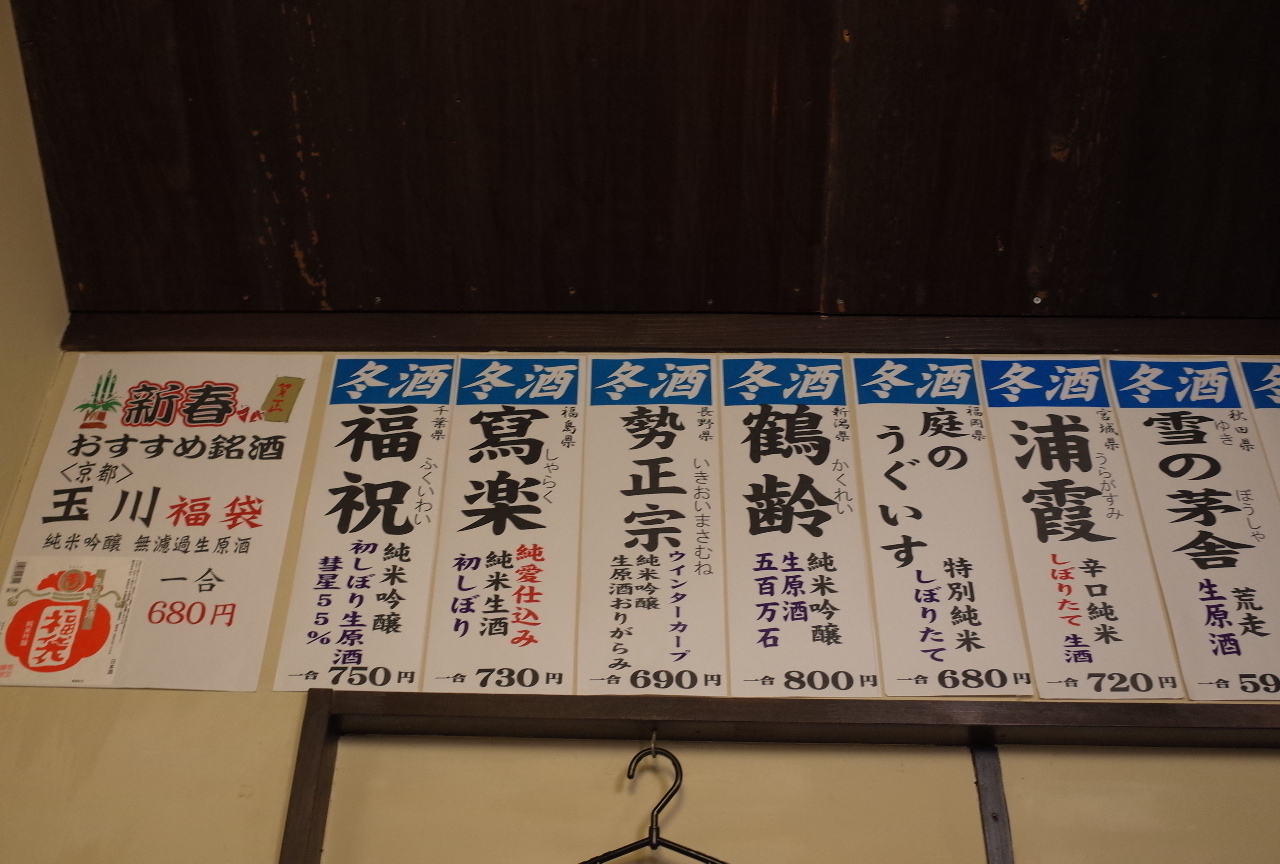 新春
おすすめ銘酒
〈京都〉
玉川 福袋
純米吟醸 無濾過生原酒
一合
680円
福袋
冬酒
千葉県
福祝
ふくいわい
純米吟醸
初しぼり生原酒
彗星55%
一合 750円
冬酒
福島県
寫楽
しゃらく
純愛仕込み
純米生酒
初しぼり
一合 730円
冬酒
長野県
勢正宗
いきおいまさむね
ウインターカープ
純米吟醸
生原酒おりがらみ
一合 690円
冬酒
新潟県
鶴齢
かくれい
純米吟醸
生原酒
五百万石
一合 800円
冬酒
福岡県
庭の
うぐいす
特別純米
しぼりたて
一合 680円
冬酒
宮城県
浦霞
うらがすみ
辛口純米
しぼりたて 生酒
一合 720円
冬酒
秋田県
雪の茅舎
ゆき ぼうしゃ
荒走
生原酒
一合 59
冬